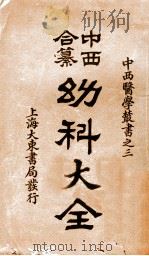 中西醫學叢書之三
中西
合纂
幼科大全
上海大東書局發行
www.ertongbook.com